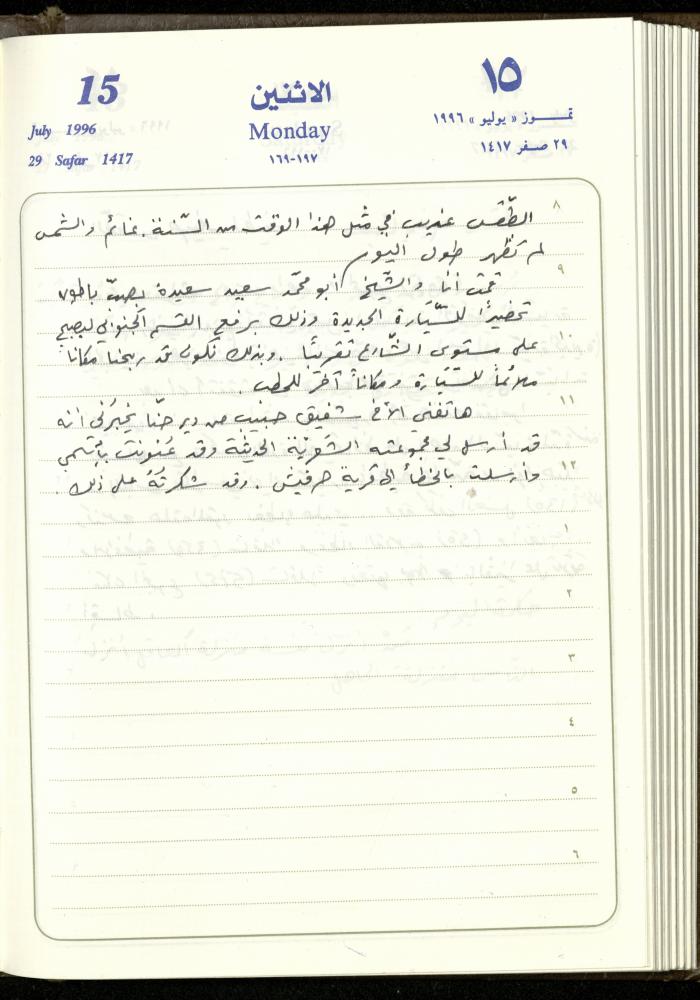 15
July 1996
29 Safar 1417
الاثنين
Monday
١٩٧-١٦٩
١٥
تمـــوز « يوليو » ١٩٩٦
٢٩ صفر ١٤١٧
٨
الطّقس غريب في مثل هذا الوقت من السّنة. غائم والشمس
لم تظهر طول اليوم
٩
قمت أنا والشّيخ أبو محمّد سعيد سعيدة بصبّ باطون
تحضيرًا للسّيّارة الجديدة وذلك برفع القسم الجنوبي ليصبح
١٠
على مستوى الشّارع تقريبًا . وبذلك نكون قد ربحنا مكانًا
ملائمًا للسّيّارة ومكانًا آخر للحطب .
١١
هاتفني الأخ شفيق حبيب من دير حنّا يخبرني انه
قد أرسل لي مجموعته الشّعريّة الحديثة وقد عُنونت بأسمي
١٢
وأرسلت بالخطأ إلى قرية حرفيش . وقد شكرتُهُ على ذلك .
١
٢
٣
٤
٥
٦